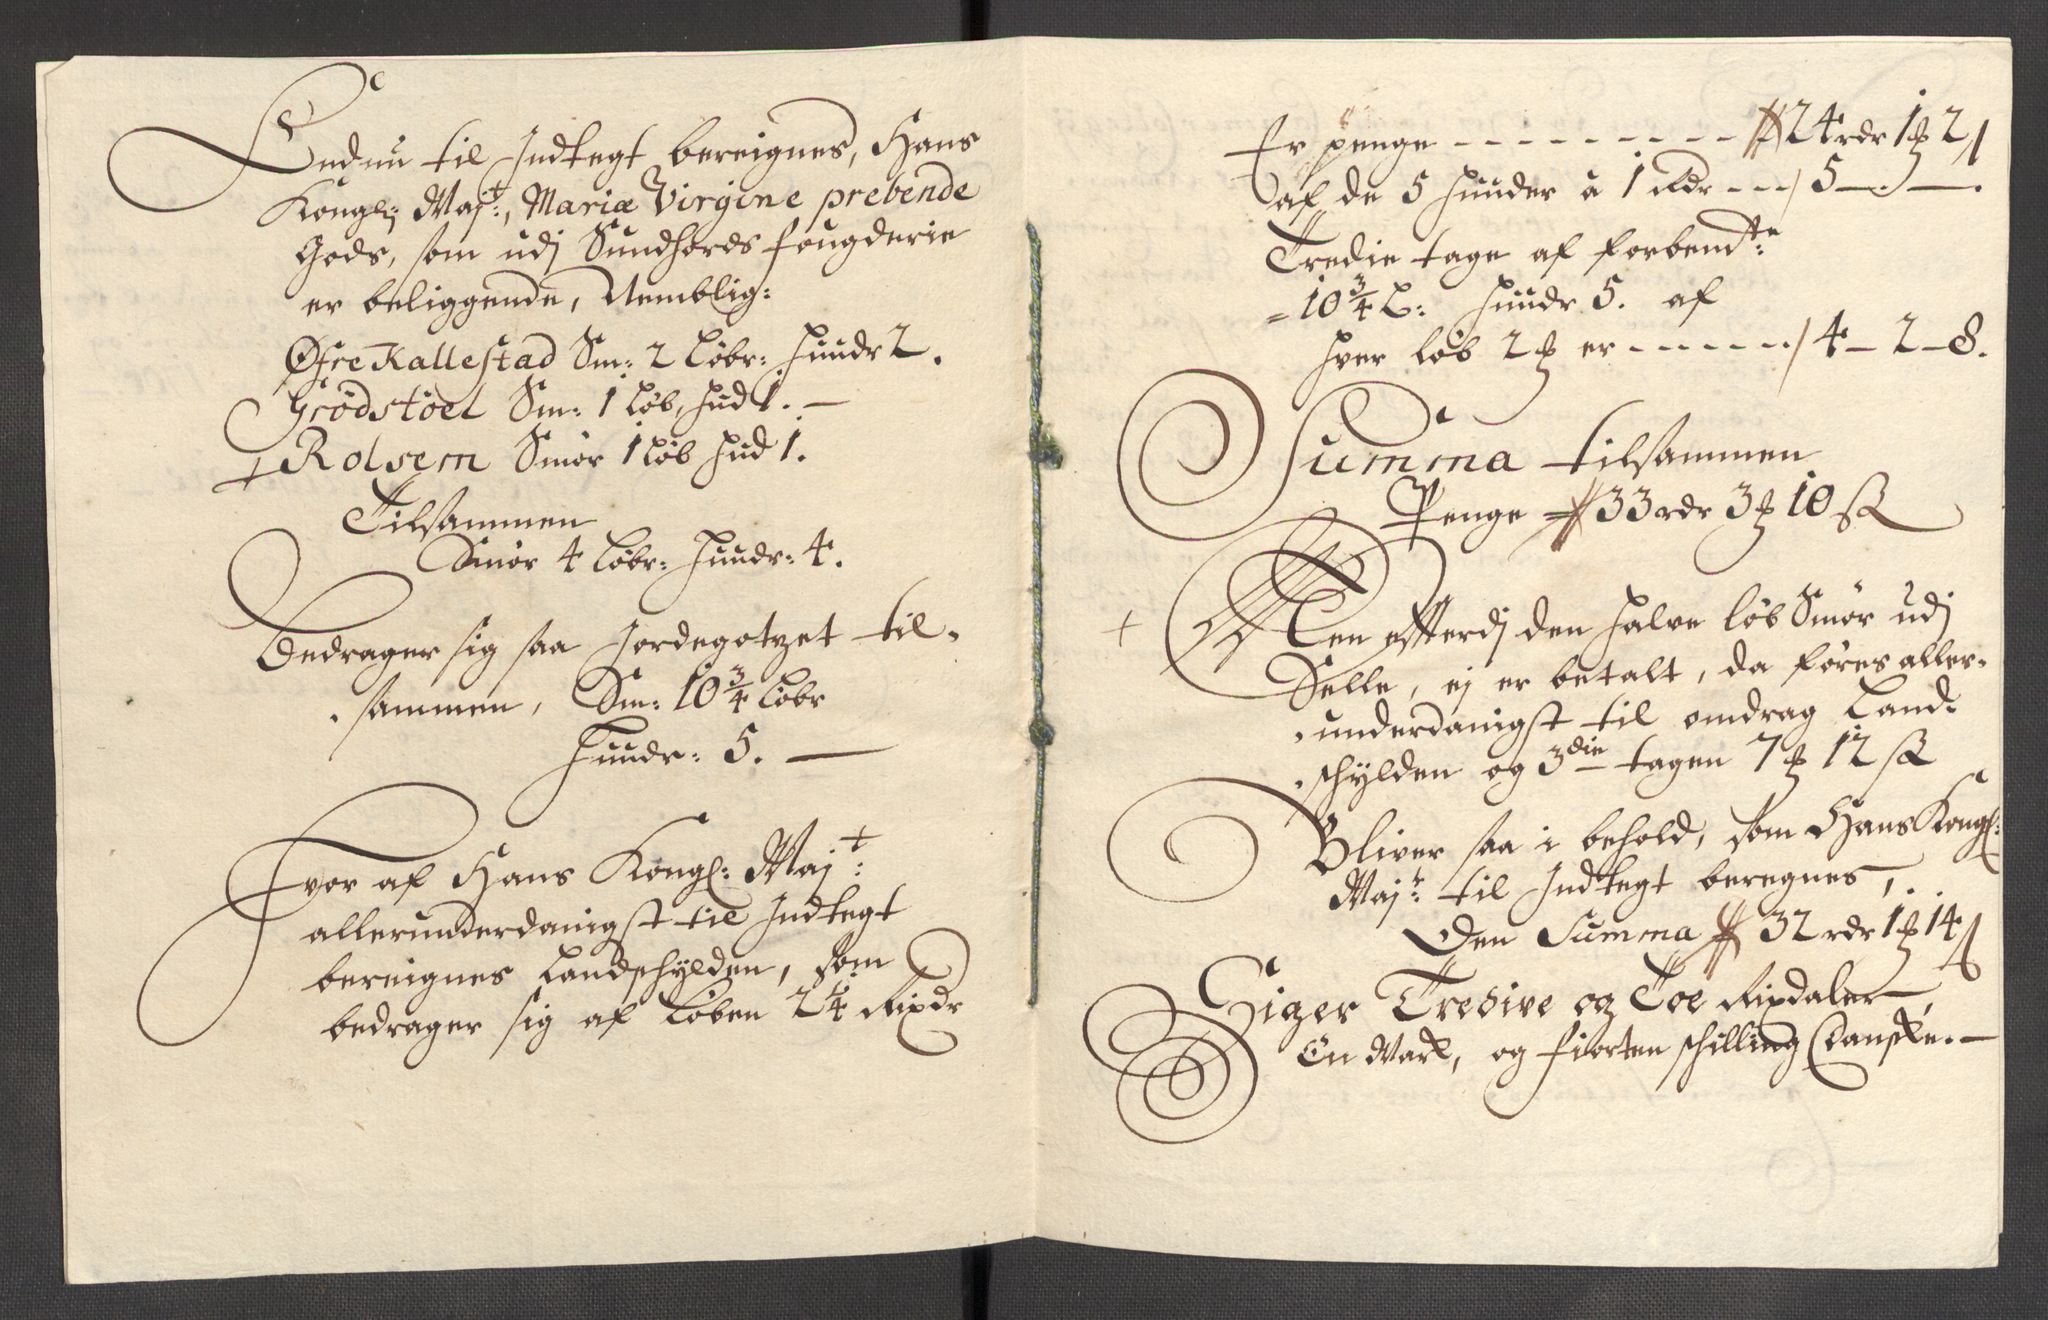 Endnu til Indtegt bereignes, Hans
Kongl: Maj:t, Mariæ Virgine prebende
Gods, som udj Sundhords fougderie
er beliggende, Nemblig:
Øfre Kallestad Sm: 2 Løbr: Huudr 2.
Grødstöel Sm: 1 Løb, Hud 1. —
+ Rolsem Smør 1 Løb Hud 1.
Tilsammen
Smør 4 Løbr: Huudr: 4.
Bedrager sig saa Jordegotzet til-
sammen, Sm: 10 3/4 Løbr
Huudr: 5. —
Hvor af Hans Kongl: Maj:t
allerunderdanigst til Indtegt
bereignes Landschylden, som
bedrager sig af Løben 2 1/4 Rixdr
Er penge - - - - - - - - - 24 rdr 1 ꝳ 2 ẞ
af de 5 Huuder à 1 Rdr - - - / 5 — . — .
Tredie tage af forbemt:e
= 10 3/4 L: Huudr 5. af
Hver Løb 2 ꝳ er - - - - - - / 4 — 2 — 8.
Summa tilsammen
Penge 33 rdr 3 ꝳ 10 ẞ
+ Men efterdj den halve løb Smør udj
Selle, ej er betalt, da føres aller-
underdanigst til omdrag Land-
schylden og 3die tagen 7 ꝳ 12 ẞ
Bliver saa i behold, som Hans Kongl:
Maj:t til Indtegt beregnes,
Den Summa 32 rdr 1 ꝳ 14 ẞ
Siger Tredive og Toe Rixdaler,
En Mark, og fiorten schilling Danske. —